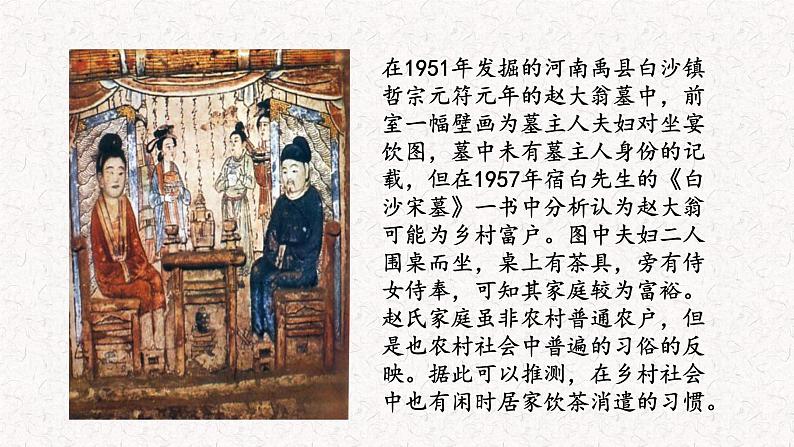 在1951年发掘的河南禹县白沙镇
哲宗元符元年的赵大翁墓中，前
室一幅壁画为墓主人夫妇对坐宴
饮图，墓中未有墓主人身份的记
载，但在1957年宿白先生的《白
沙宋墓》一书中分析认为赵大翁
可能为乡村富户。图中夫妇二人
围桌而坐，桌上有茶具，旁有侍
女侍奉，可知其家庭较为富裕。
赵氏家庭虽非农村普通农户，但
是也农村社会中普遍的习俗的反
映。据此可以推测，在乡村社会
中也有闲时居家饮茶消遣的习惯。